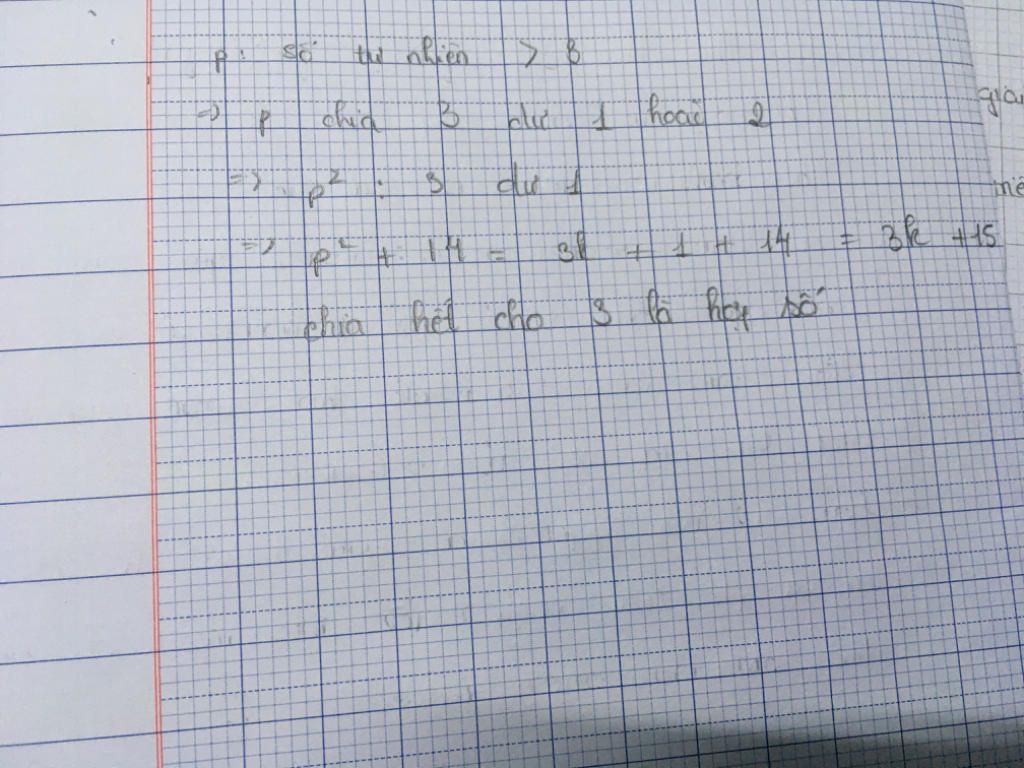 p: số tự nhiên > 3
=> p chia 3 dư 1 hoặc 2
=> p² : 3 dư 1
=> p² + 14 = 3k + 1 + 14 = 3k + 15
chia hết cho 3 là hợp số